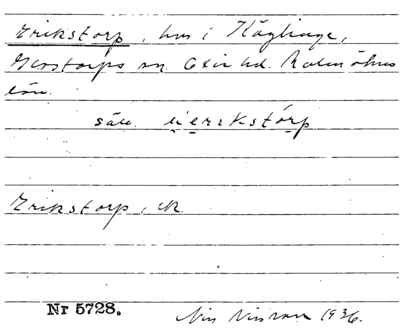 Erikstorp, hus i Käglinge,
Glostorps sn. Oxie hd. Malmöhus
län.
säv. ei erikstorp
Erikstorp, ek.
Nr 5728.
Nils Nilsson 1936.